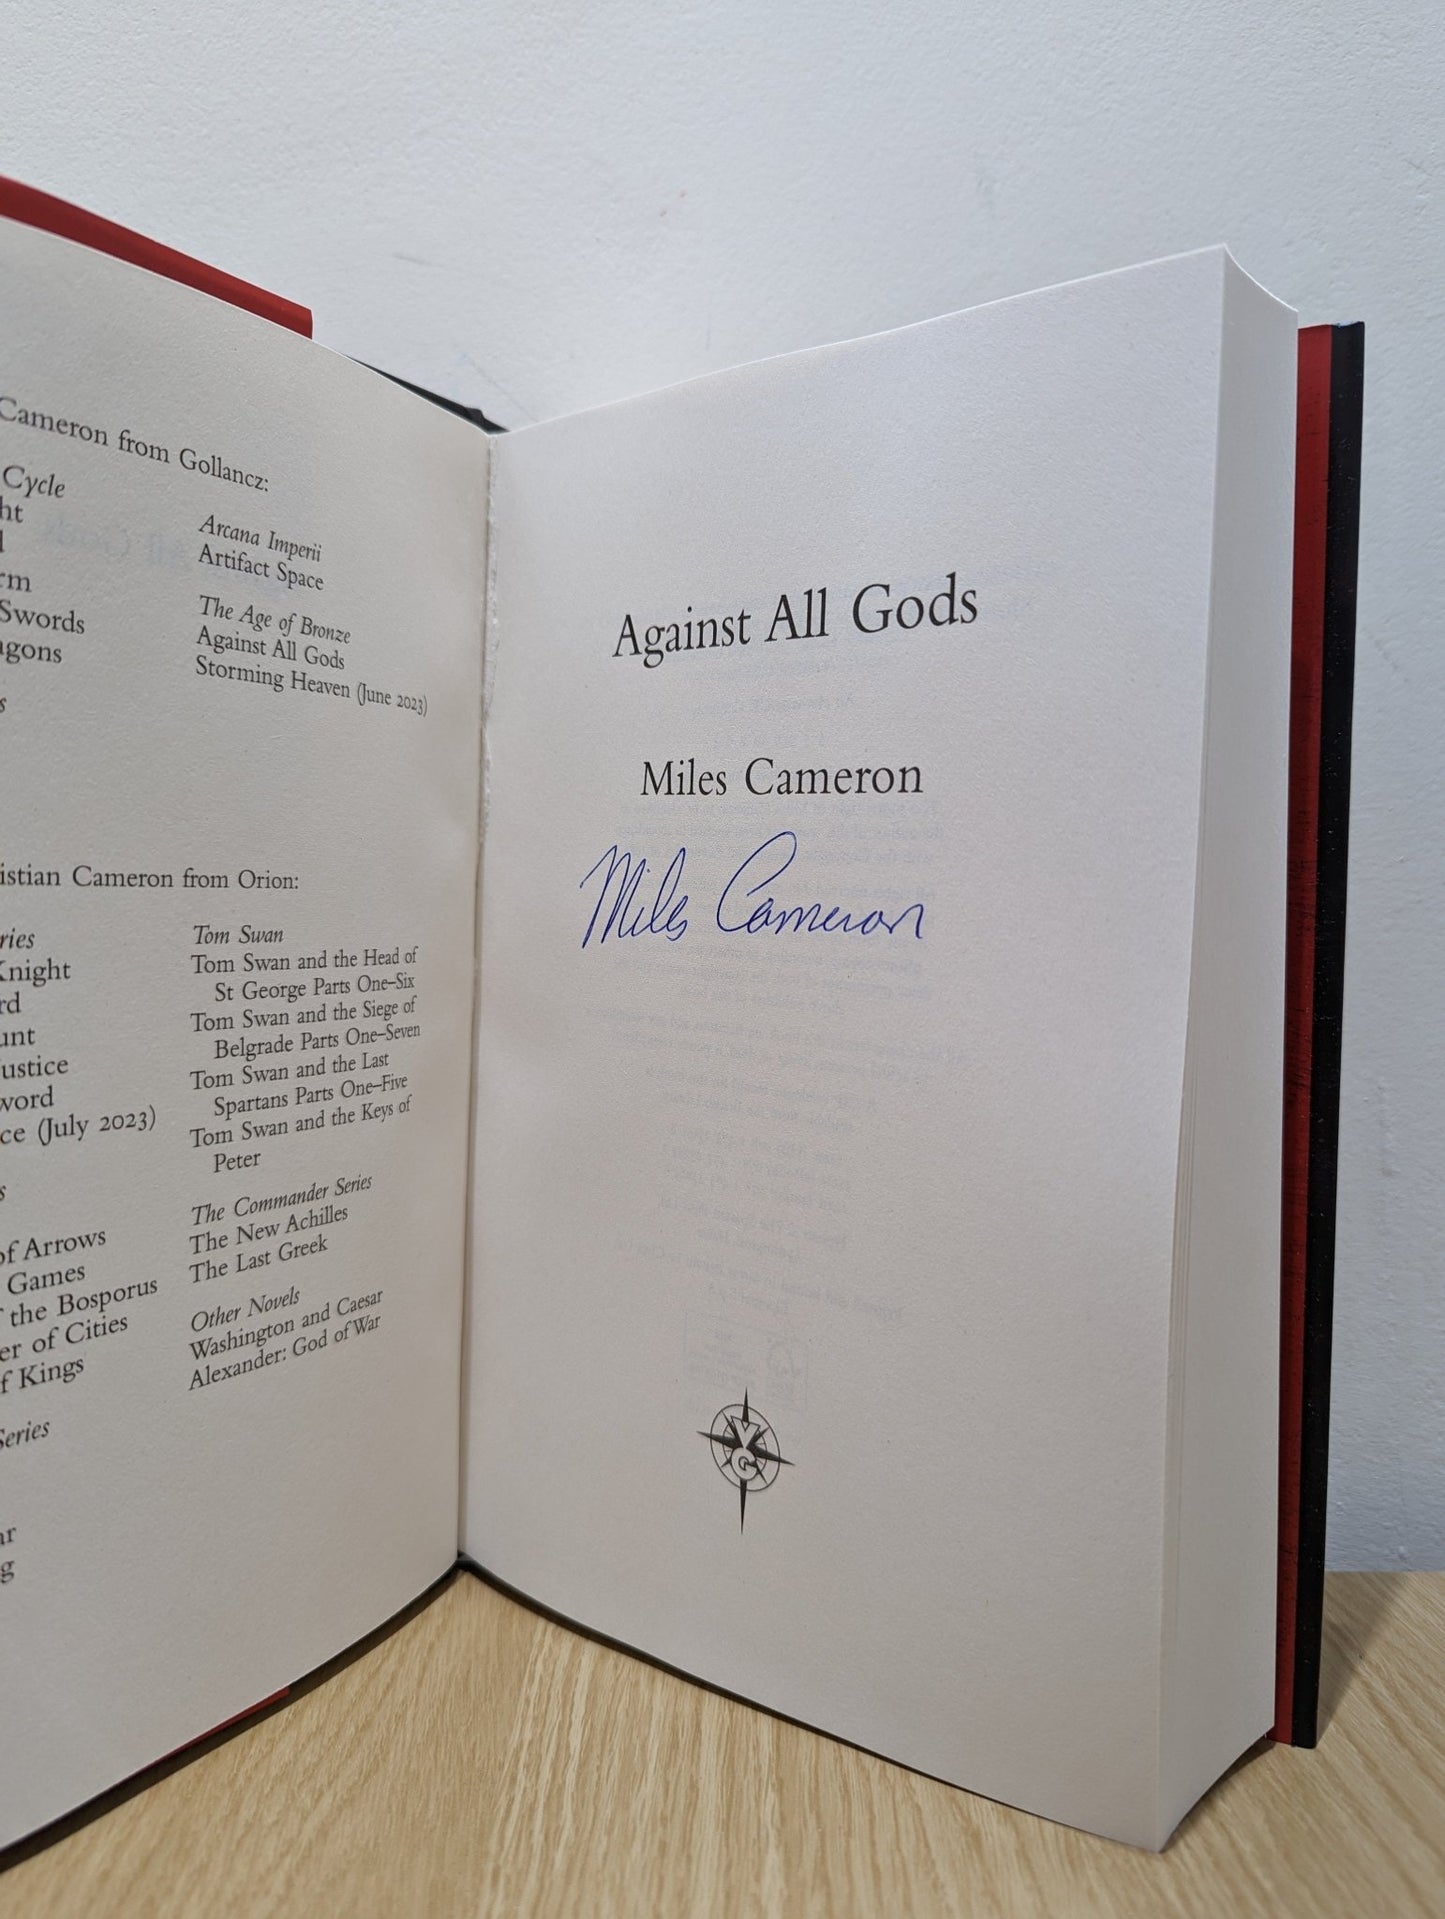 Cameron from Gollancz:
Cycle
Swords
Arcana Imperii
Artifact Space
The Age of Bronze
Against All Gods
Storming Heaven (June 2023)
Cameron from Orion:
Knight
(July 2023)
of Arrows
Games
the Bosporus
of Cities
Kings
Series
Tom Swan
Tom Swan and the Head of
St George Parts One–Six
Tom Swan and the Siege of
Belgrade Parts One–Seven
Tom Swan and the Last
Spartans Parts One–Five
Tom Swan and the Keys of
Peter
The Commander Series
The New Achilles
The Last Greek
Other Novels
Washington and Caesar
Alexander: God of War
Against All Gods
Miles Cameron
Miles Cameron
VG